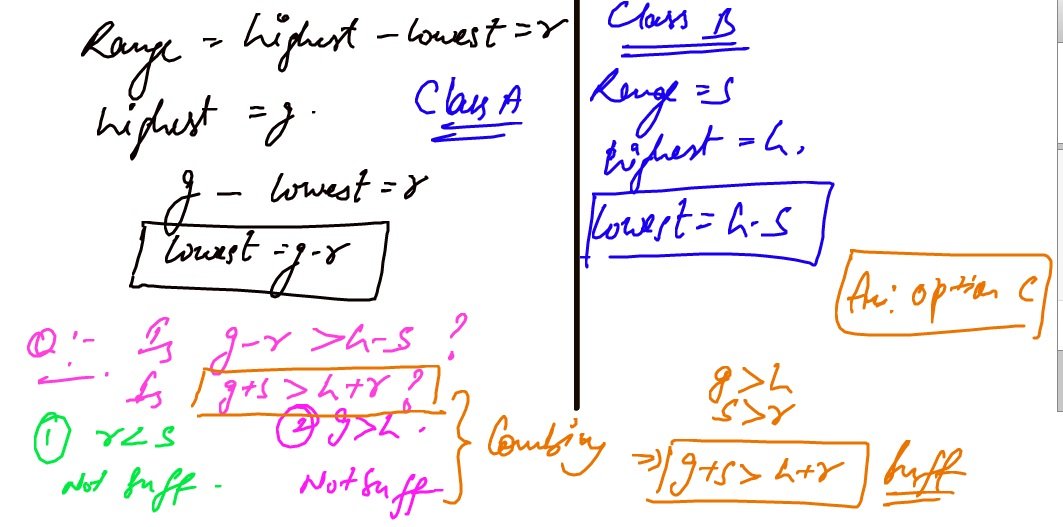 Range = highest - lowest = r
highest = g.
Class A
g - lowest = r
lowest = g-r
Class B
Range = s
highest = h.
lowest = h-s
Q:- Is g-r > h-s ?
Is g+s > h+r ?
① r < s
Not suff.
② g > h.
Not suff
Combining
g > h
s > r
=> g+s > h+r
Suff
An: option C